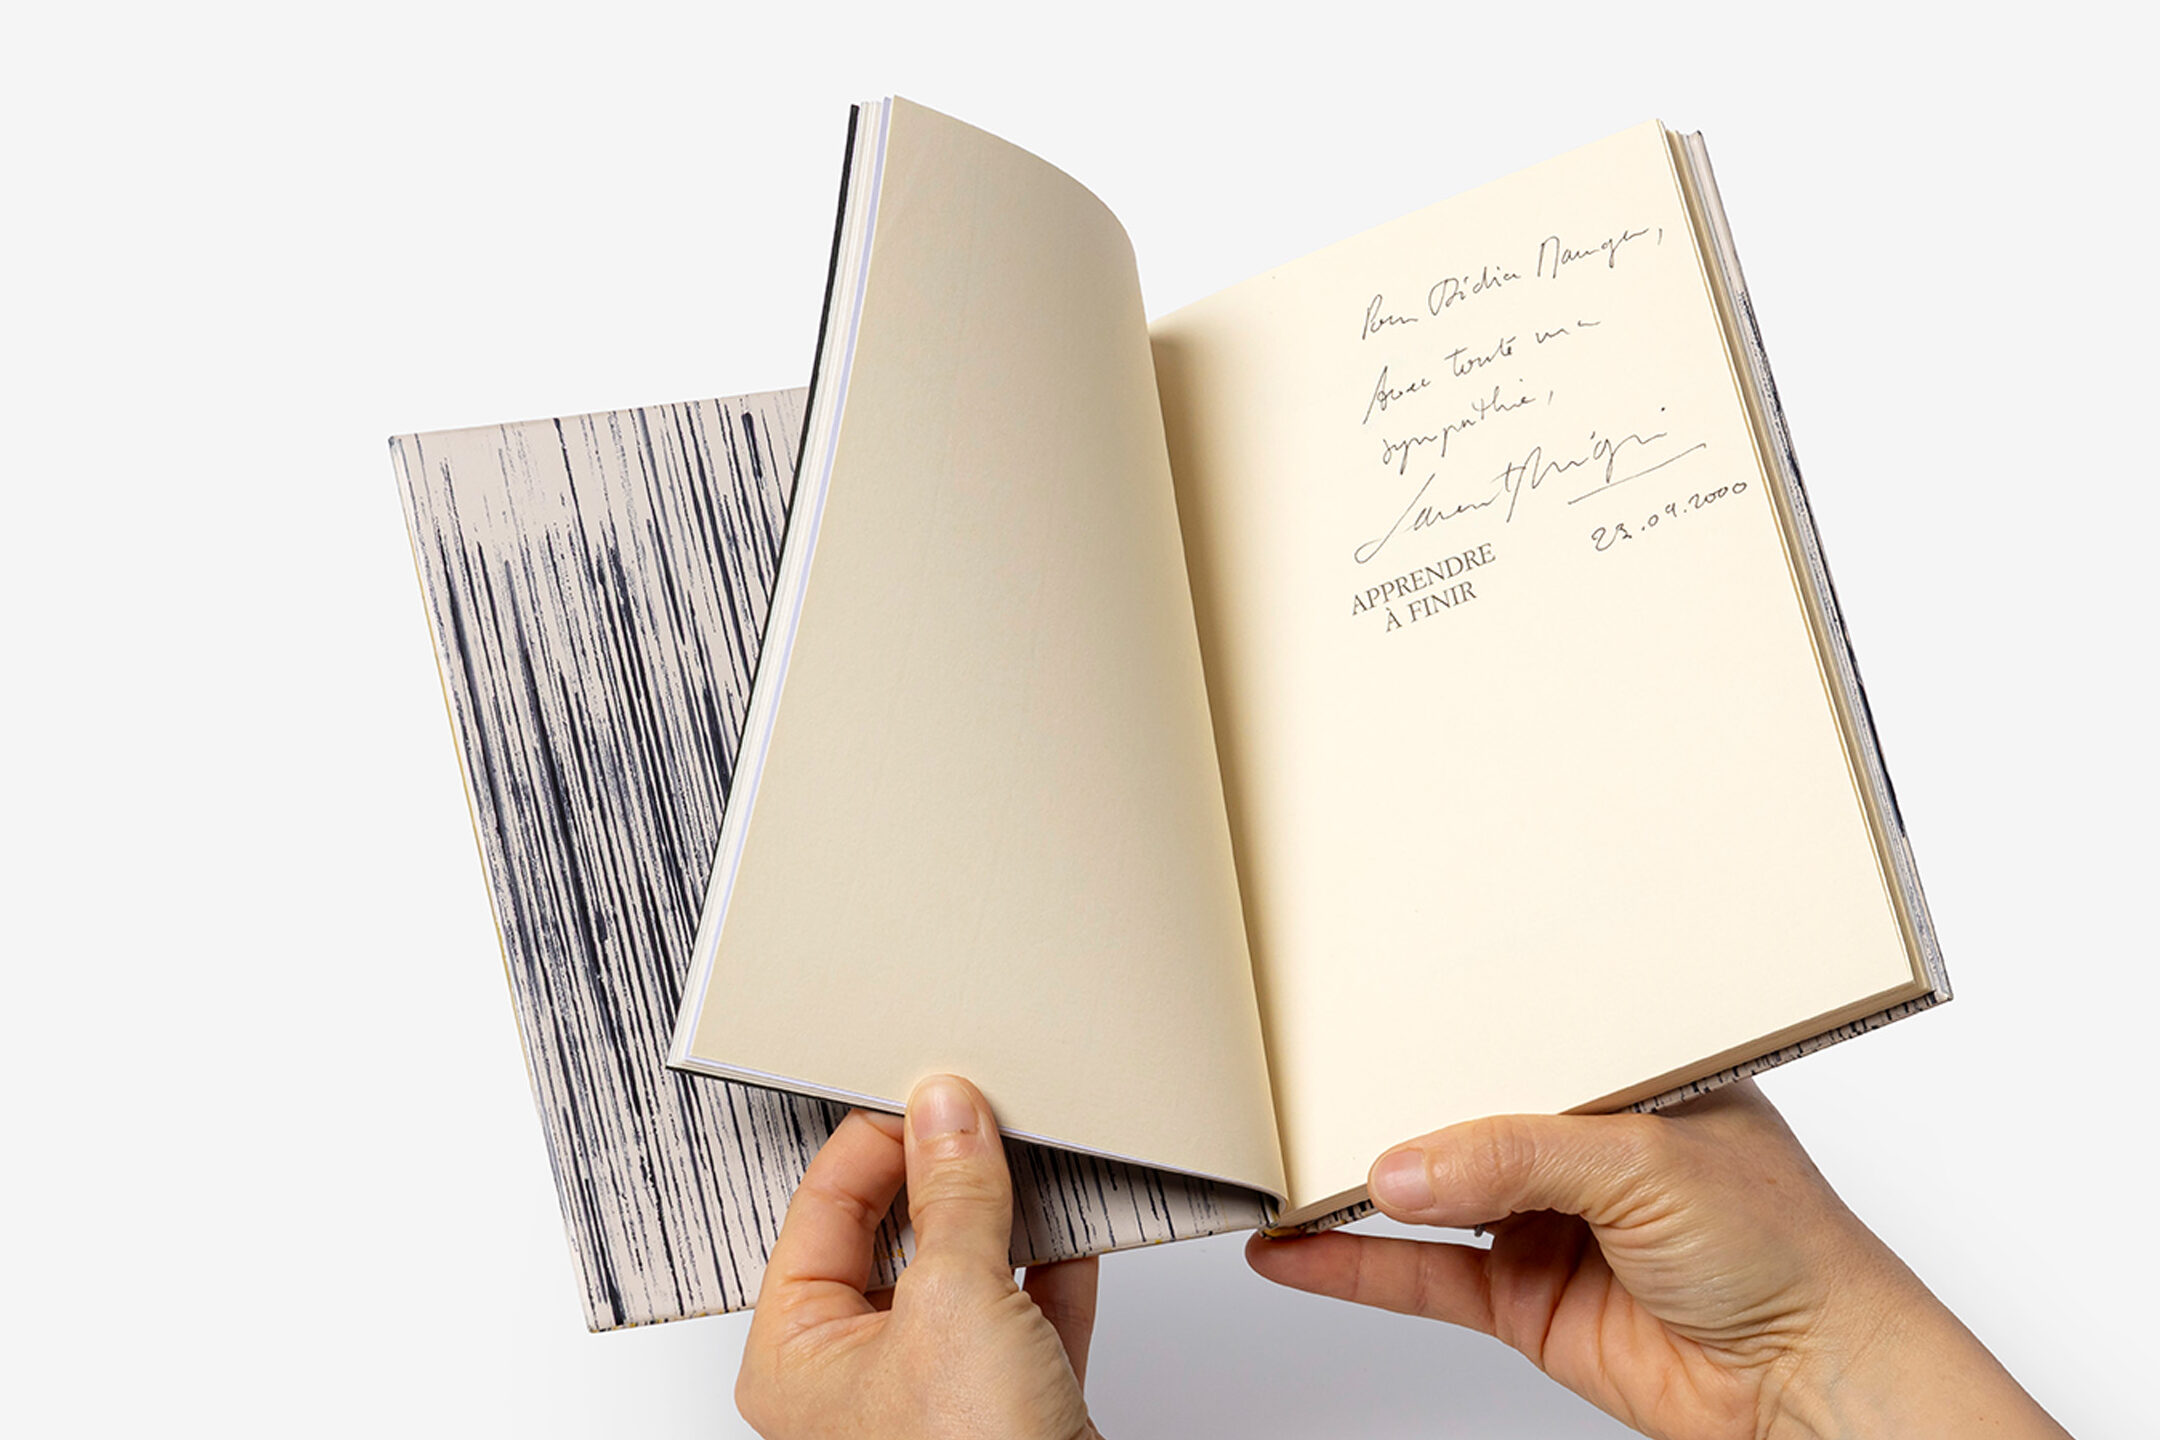 Pour Didier Mauger,
Avec toute ma
sympathie,
Laurent Mauvignier
23.09.2000
APPRENDRE
À FINIR